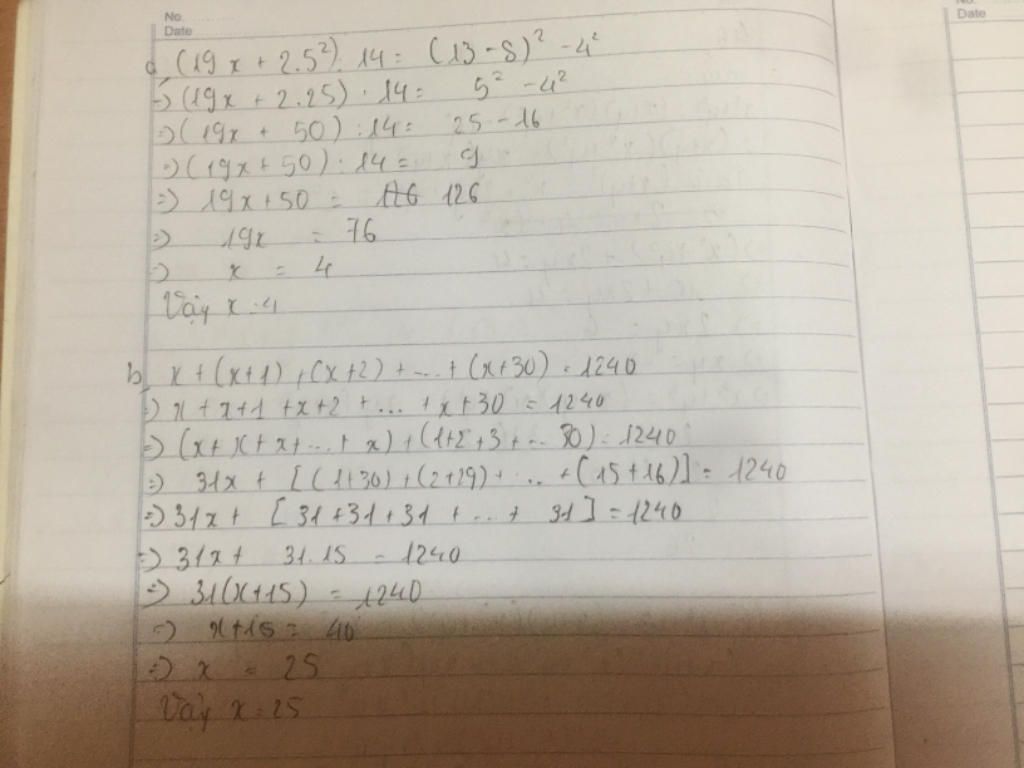 No.
Date
a) (19x + 2.5²) : 14 = (13 - 8)² - 4²
=> (19x + 2.25) : 14 = 5² - 4²
=> (19x + 50) : 14 = 25 - 16
=> (19x + 50) : 14 = 9
=> 19x + 50 = 126
=> 19x = 76
=> x = 4
Vậy x = 4
b) x + (x+1) + (x+2) + ... + (x+30) = 1240
=> x + x + 1 + x + 2 + ... + x + 30 = 1240
=> (x + x + x + ... + x) + (1+2+3+... 30) = 1240
=> 31x + [(1+30) + (2+29) + ... + (15+16)] = 1240
=> 31x + [31 + 31 + 31 + ... + 31] = 1240
=> 31x + 31.15 = 1240
=> 31(x+15) = 1240
=> x + 15 = 40
=> x = 25
Vậy x = 25
No.
Date